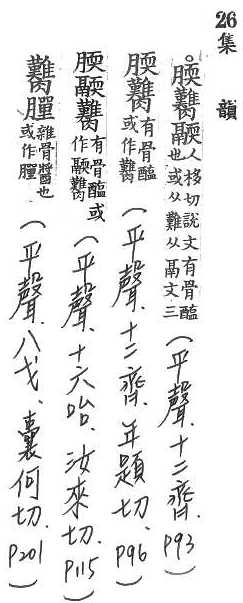 26 集韻
腝臡 人移切說文有骨醢也或从難从鬲文三 (平聲、十二齊. P93)
腝臡 有骨醢或作臡 (平聲、十二齊. 年題切、P96)
腝臡 有骨醢或作臡 (平聲、十六咍、汝來切、P115)
臡 雜骨醬也或作 (平聲、八戈、囊何切、P201)